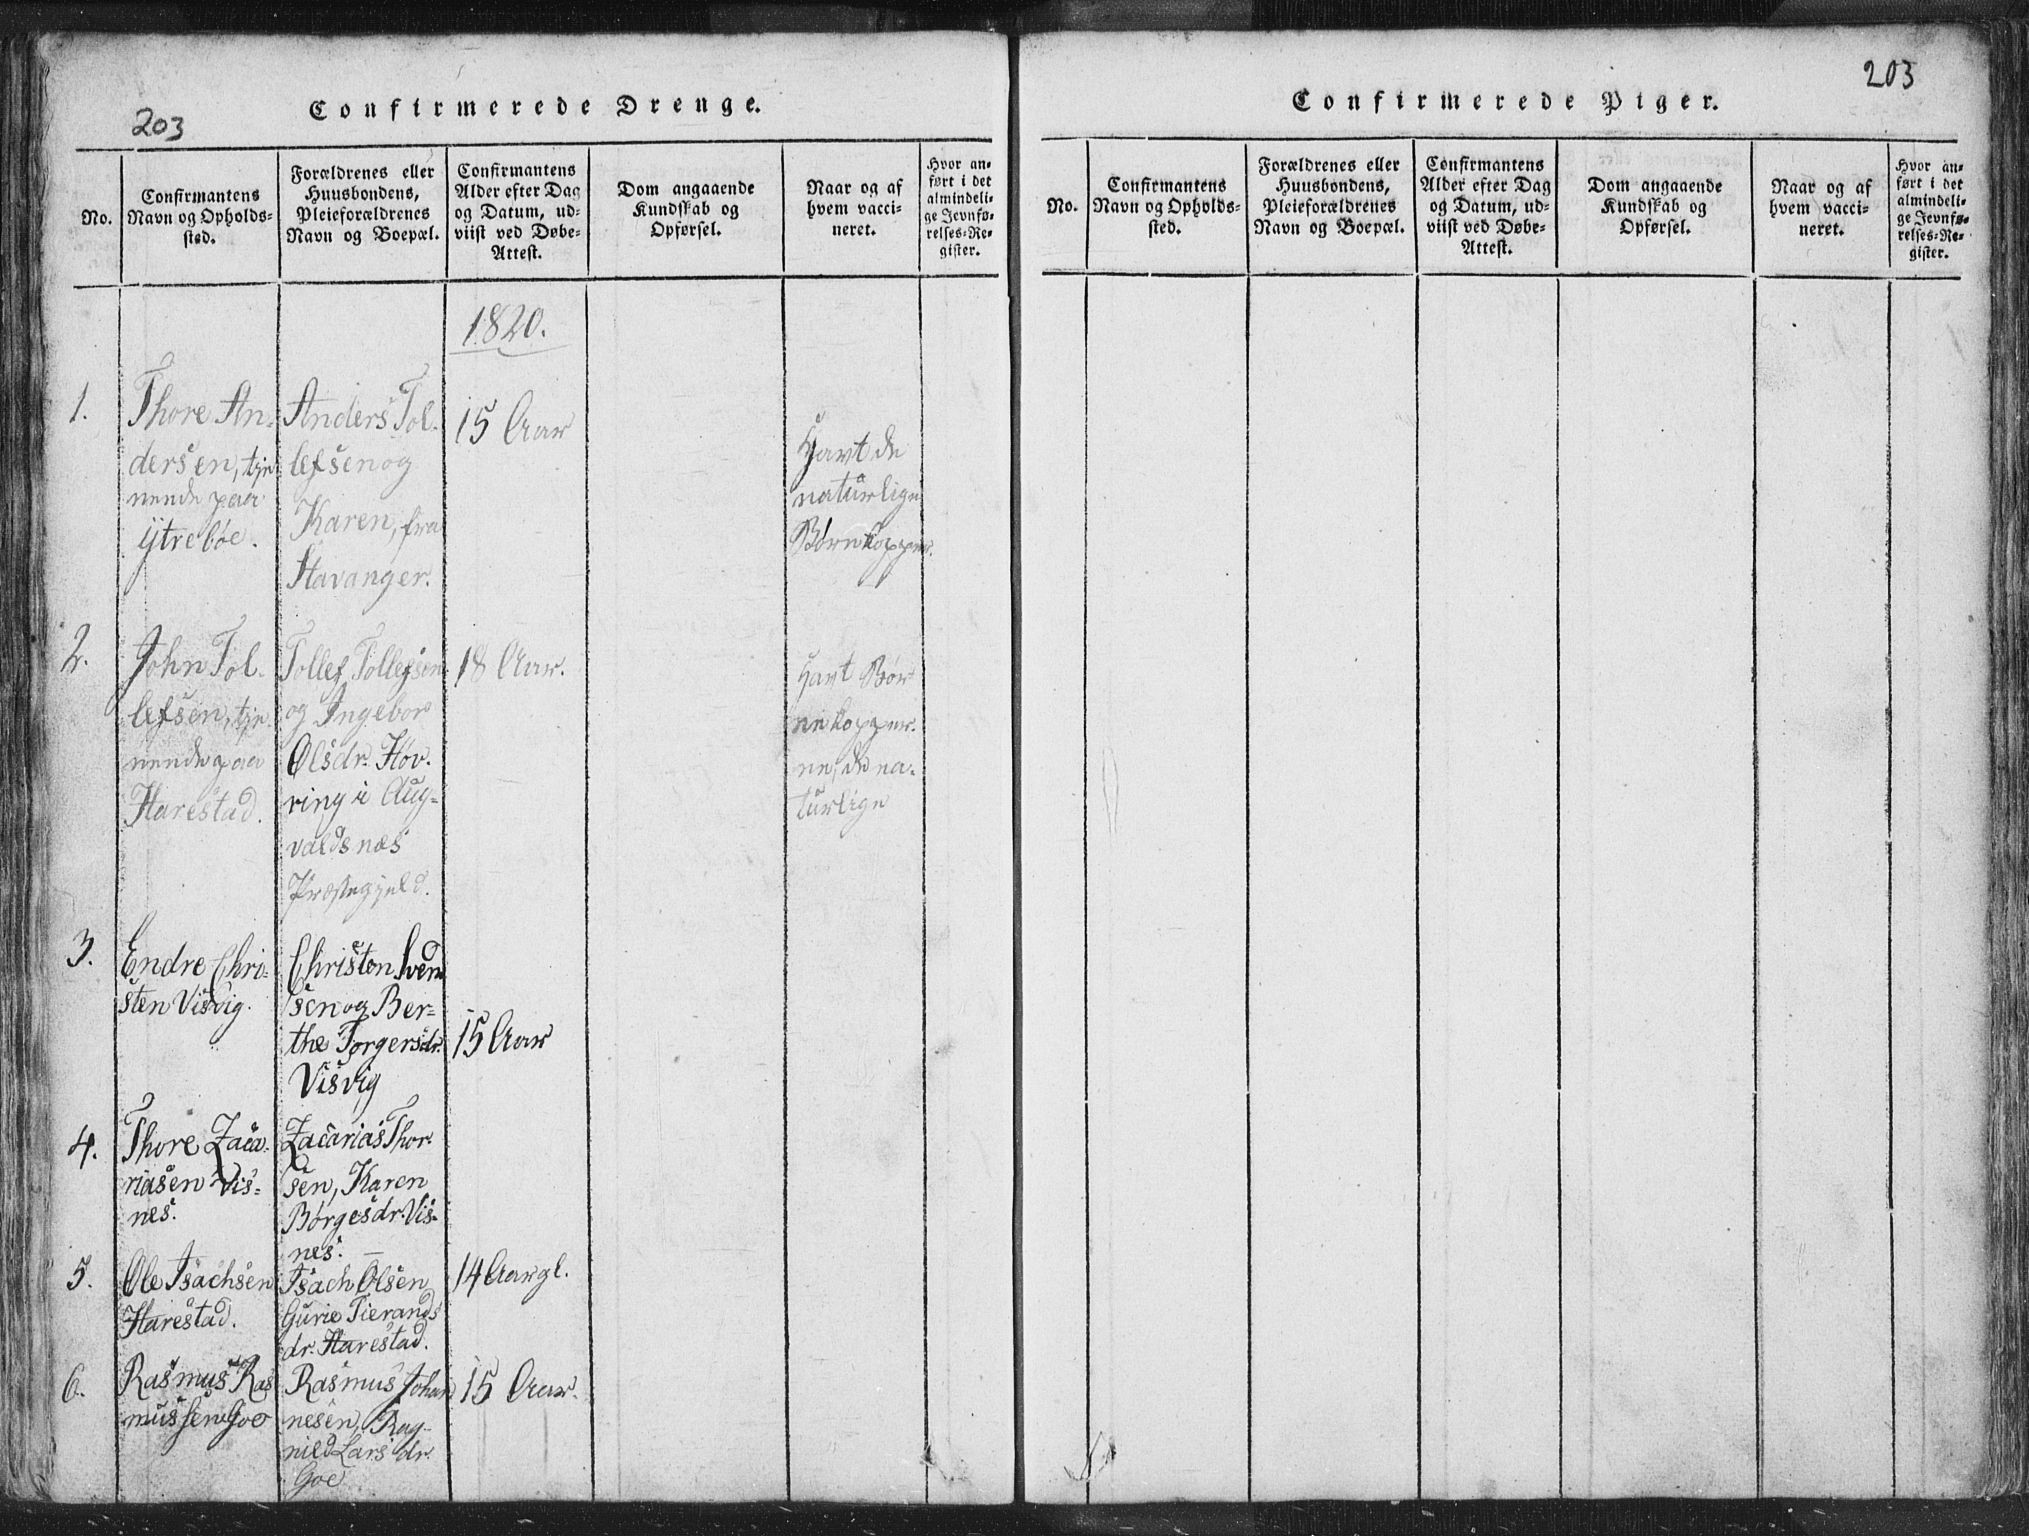 203
Confirmerede Drenge.
No.
Confirmantens
Navn og Opholds-
sted.
Forældrenes eller
Huusbondens,
Pleieforældrenes
Navn og Boepæl.
Confirmantens
Alder efter Dag
og Datum, ud-
viist ved Døbe-
Attest.
Dom angaaende
Kundskab og
Opførsel.
Naar og af
hvem vacci-
neret.
Hvor an-
ført i det
almindeli-
ge Jevnfø-
relses-Re-
gister.
1820.
1.
Thore An-
dersen, tje
nende paa
Ytreböe.
Anders Tol-
lefsen og
Karen, fra
Stavanger.
15 Aar
Havt de
naturlige
Børnkopper.
2.
John Tol-
lefsen, tje
nende paa
Harestad.
Tollef Tollefsen
og Ingebor
Olsdr. Höv-
ring i Aug-
valdsnæs
Præstegjeld.
18 Aar.
Havt Bør
nekopper-
ne, de na-
turlige
3.
Endre Chri-
sten Visvig.
Christen Svend
sen og Ber-
the Torgersdr.
Visvig
15 Aar
4.
Thore Zaca-
riasen Vis-
nes.
Zacarias Thor-
sen, Karen
Börgesdr. Vis-
nes.
5.
Ole Isachsen
Harestad.
Isach Olsen
Gurie Tierands
dr. Harestad.
14 Aar gl.
6.
Rasmus Ras
mussen Goe
Rasmus Johan
nesen, Rag-
nild Lars dr.
Goe
15 Aar.
203
Confirmerede Piger.
No.
Confirmantens
Navn og Opholds-
sted.
Forældrenes eller
Huusbondens,
Pleieforældrenes
Navn og Boepæl.
Confirmantens
Alder efter Dag
og Datum, ud-
viist ved Døbe-
Attest.
Dom angaaende
Kundskab og
Opførsel.
Naar og af
hvem vacci-
neret.
Hvor an-
ført i det
almindeli-
ge Jevnfø-
relses-Re-
gister.